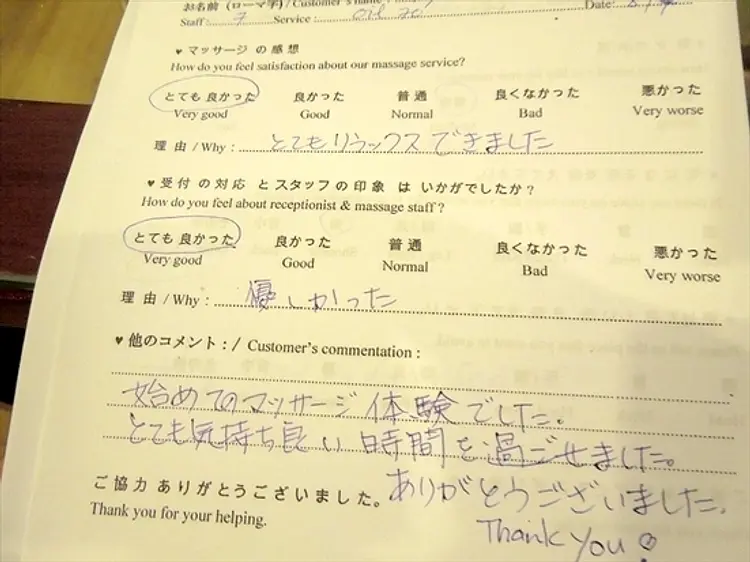 お名前 (ローマ字) / Customer's name : Date:
Staff : 7 Service : oil
♥ マッサージ の 感想
How do you feel satisfaction about our massage service?
とても 良かった 良かった 普通 良くなかった 悪かった
Very good Good Normal Bad Very worse
理由 / Why : とてもリラックスできました
♥ 受付 の 対応 と スタッフ の 印象 は いかがでしたか ?
How do you feel about receptionist & massage staff ?
とても 良かった 良かった 普通 良くなかった 悪かった
Very good Good Normal Bad Very worse
理由 / Why : 優しかった
♥ 他のコメント : / Customer's commentation :
始めてのマッサージ体験でした。
とても気持ち良い時間を過ごせました。
ご協力 ありがとうございました。 ありがとうございました。
Thank you for your helping.
Thank you!